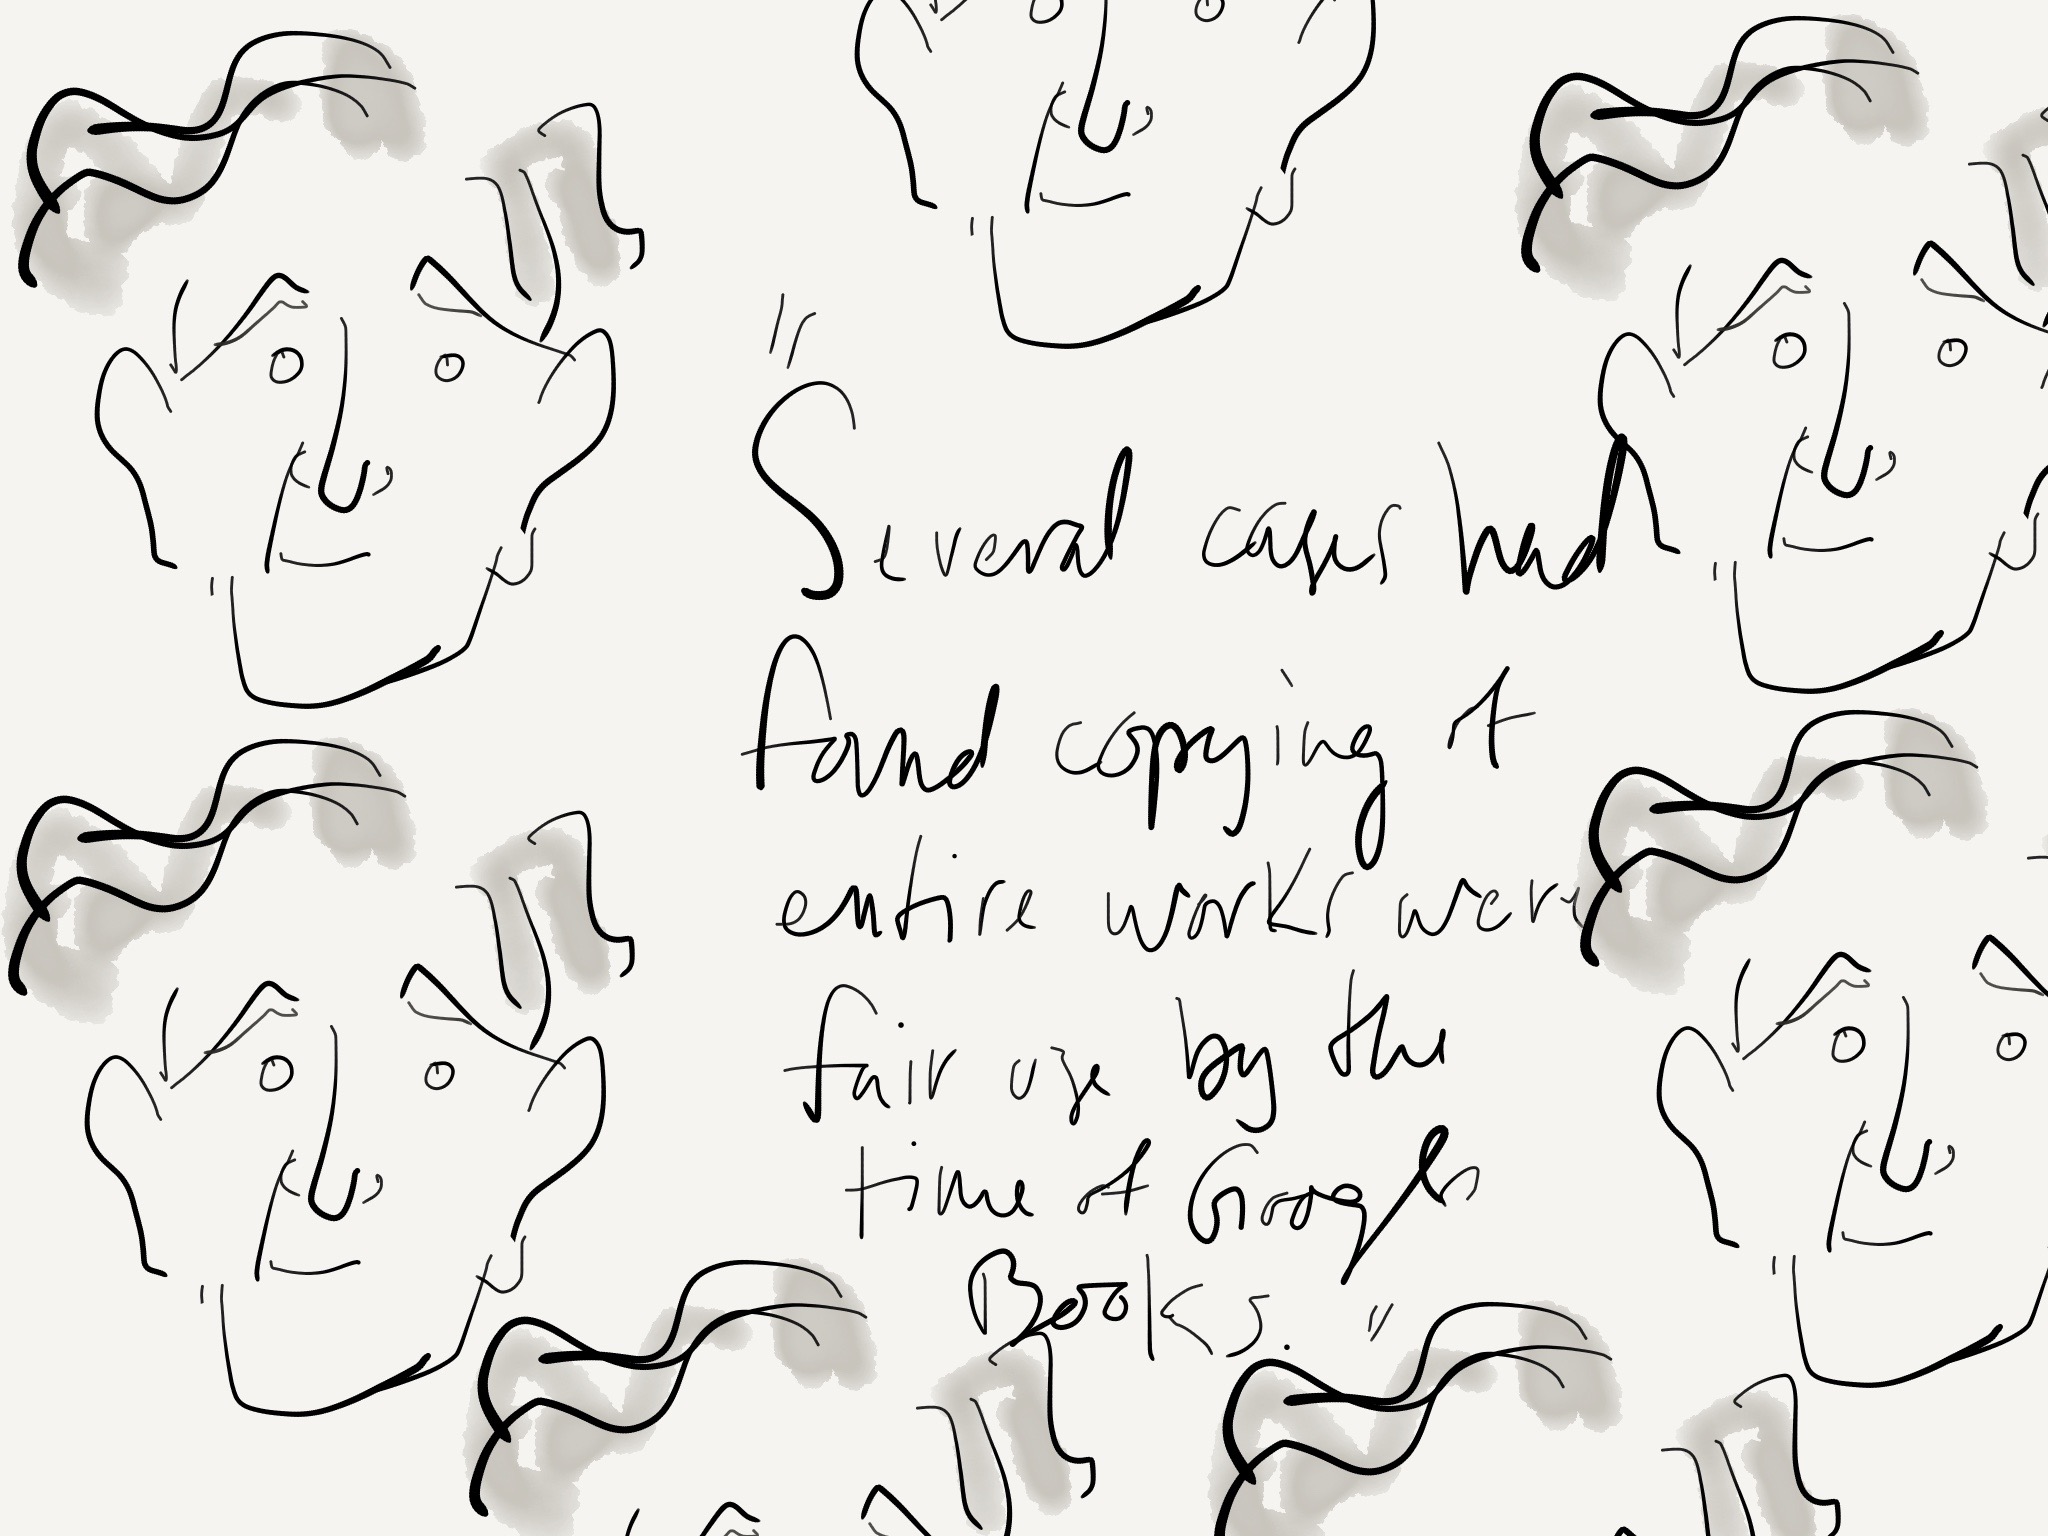 "Several cases had
found copying of
entire works were
fair use by the
time of Google
Books."